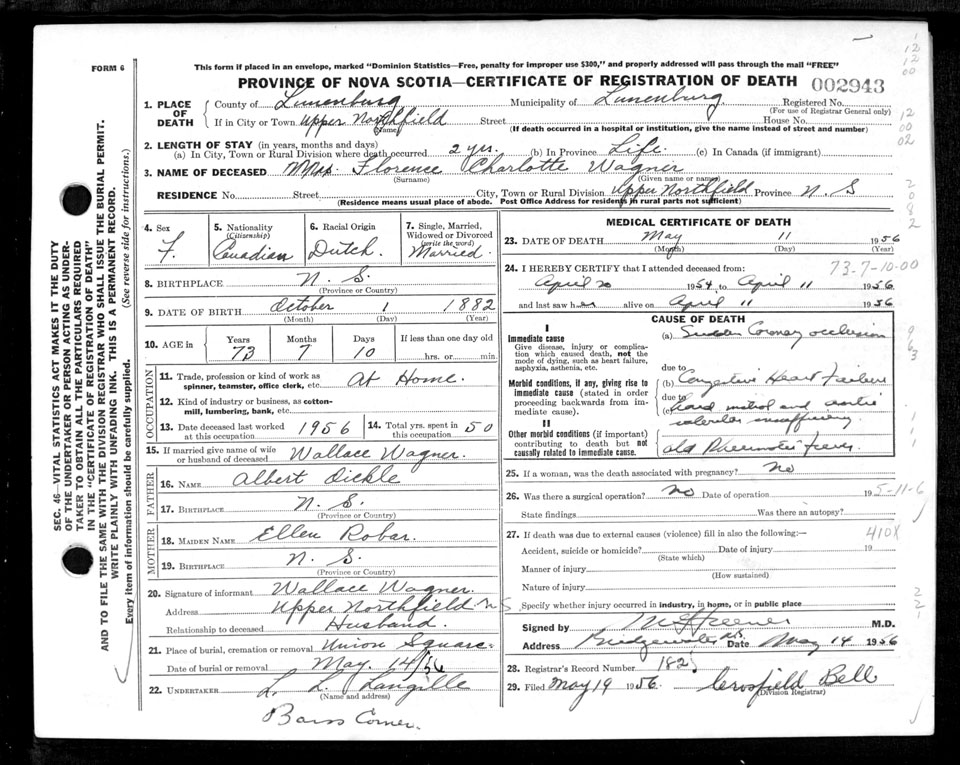 FORM 6
This form if placed in an envelope, marked "Dominion Statistics—Free, penalty for improper use $300," and properly addressed will pass through the mail "FREE"
PROVINCE OF NOVA SCOTIA—CERTIFICATE OF REGISTRATION OF DEATH 002943
1. PLACE OF DEATH County of Lunenburg Municipality of Lunenburg Registered No.
(For use of Registrar General only)
If in City or Town Upper Northfield Street House No.
(Name) (If death occurred in a hospital or institution, give the name instead of street and number)
2. LENGTH OF STAY (in years, months and days)
(a) In City, Town or Rural Division where death occurred 2 yrs. (b) In Province Life. (c) In Canada (if immigrant)
3. NAME OF DECEASED Mrs. Florence Charlotte Wagner
(Surname) (Given name or names)
RESIDENCE No. Street City, Town or Rural Division Upper Northfield Province N. S
(Residence means usual place of abode. Post Office Address for residents in rural parts not sufficient)
4. Sex F.
5. Nationality (Citizenship) Canadian
6. Racial Origin Dutch.
7. Single, Married, Widowed or Divorced (write the word) Married.
8. BIRTHPLACE N. S.
(Province or Country)
9. DATE OF BIRTH October 1 1882
(Month) (Day) (Year)
10. AGE in Years 73 Months 7 Days 10 If less than one day old
hrs. or min.
OCCUPATION
11. Trade, profession or kind of work as spinner, teamster, office clerk, etc. At Home.
12. Kind of industry or business, as cotton-mill, lumbering, bank, etc.
13. Date deceased last worked at this occupation 1956
14. Total yrs. spent in this occupation 50
15. If married give name of wife or husband of deceased Wallace Wagner.
FATHER
16. NAME Albert Dickle
17. BIRTHPLACE N. S.
(Province or Country)
MOTHER
18. MAIDEN NAME Ellen Robar.
19. BIRTHPLACE N. S.
(Province or Country)
20. Signature of informant Wallace Wagner.
Address Upper Northfield N S
Relationship to deceased Husband.
21. Place of burial, cremation or removal Union Square.
Date of burial or removal May. 14/56
22. UNDERTAKER L. L. Langille
(Name and address)
Barss Corner.
MEDICAL CERTIFICATE OF DEATH
23. DATE OF DEATH May 11 1956
(Month) (Day) (Year)
24. I HEREBY CERTIFY that I attended deceased from: 73-7-10-00
April 20 1954 to April 11 1956
and last saw her alive on April 11 1956
CAUSE OF DEATH
I
Immediate cause
Give disease, injury or complication which caused death, not the mode of dying, such as heart failure, asphyxia, asthenia, etc.
(a) Sudden Coronary occlusion
due to
Morbid conditions, if any, giving rise to immediate cause (stated in order proceeding backwards from immediate cause).
(b) Congestive Heart Failure
due to
(c) mitral and aortic
valvular insufficiency
II
Other morbid conditions (if important) contributing to death but not causally related to immediate cause.
old Rheumatic Fever
25. If a woman, was the death associated with pregnancy? no
26. Was there a surgical operation? no Date of operation 19 5-11-6
State findings Was there an autopsy?
27. If death was due to external causes (violence) fill in also the following:— 410X
Accident, suicide or homicide? Date of injury 19
(State which)
Manner of injury
(How sustained)
Nature of injury
Specify whether injury occurred in industry, in home, or in public place
Signed by M.D.
Address Bridgewater N.S. Date May 14 1956
28. Registrar's Record Number 182
29. Filed May 19 1956. Crossfield Bell
(Division Registrar)
SEC. 46—VITAL STATISTICS ACT MAKES IT THE DUTY
OF THE UNDERTAKER OR PERSON ACTING AS UNDER-
TAKER TO OBTAIN ALL THE PARTICULARS REQUIRED
IN THE "CERTIFICATE OF REGISTRATION OF DEATH"
AND TO FILE THE SAME WITH THE DIVISION REGISTRAR WHO SHALL ISSUE THE BURIAL PERMIT.
WRITE PLAINLY WITH UNFADING INK. THIS IS A PERMANENT RECORD.
Every item of information should be carefully supplied. (See reverse side for instructions.)